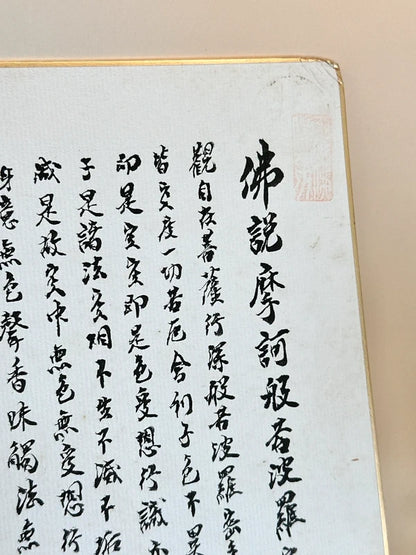 佛説摩訶般若波羅
觀自在菩薩行深般若波羅密
皆空度一切苦厄舍利子色不異
即是空空即是色受想行識亦
子是諸法空相不生不滅不垢
減是故空中無色無受想行
身意無色聲香味觸法無